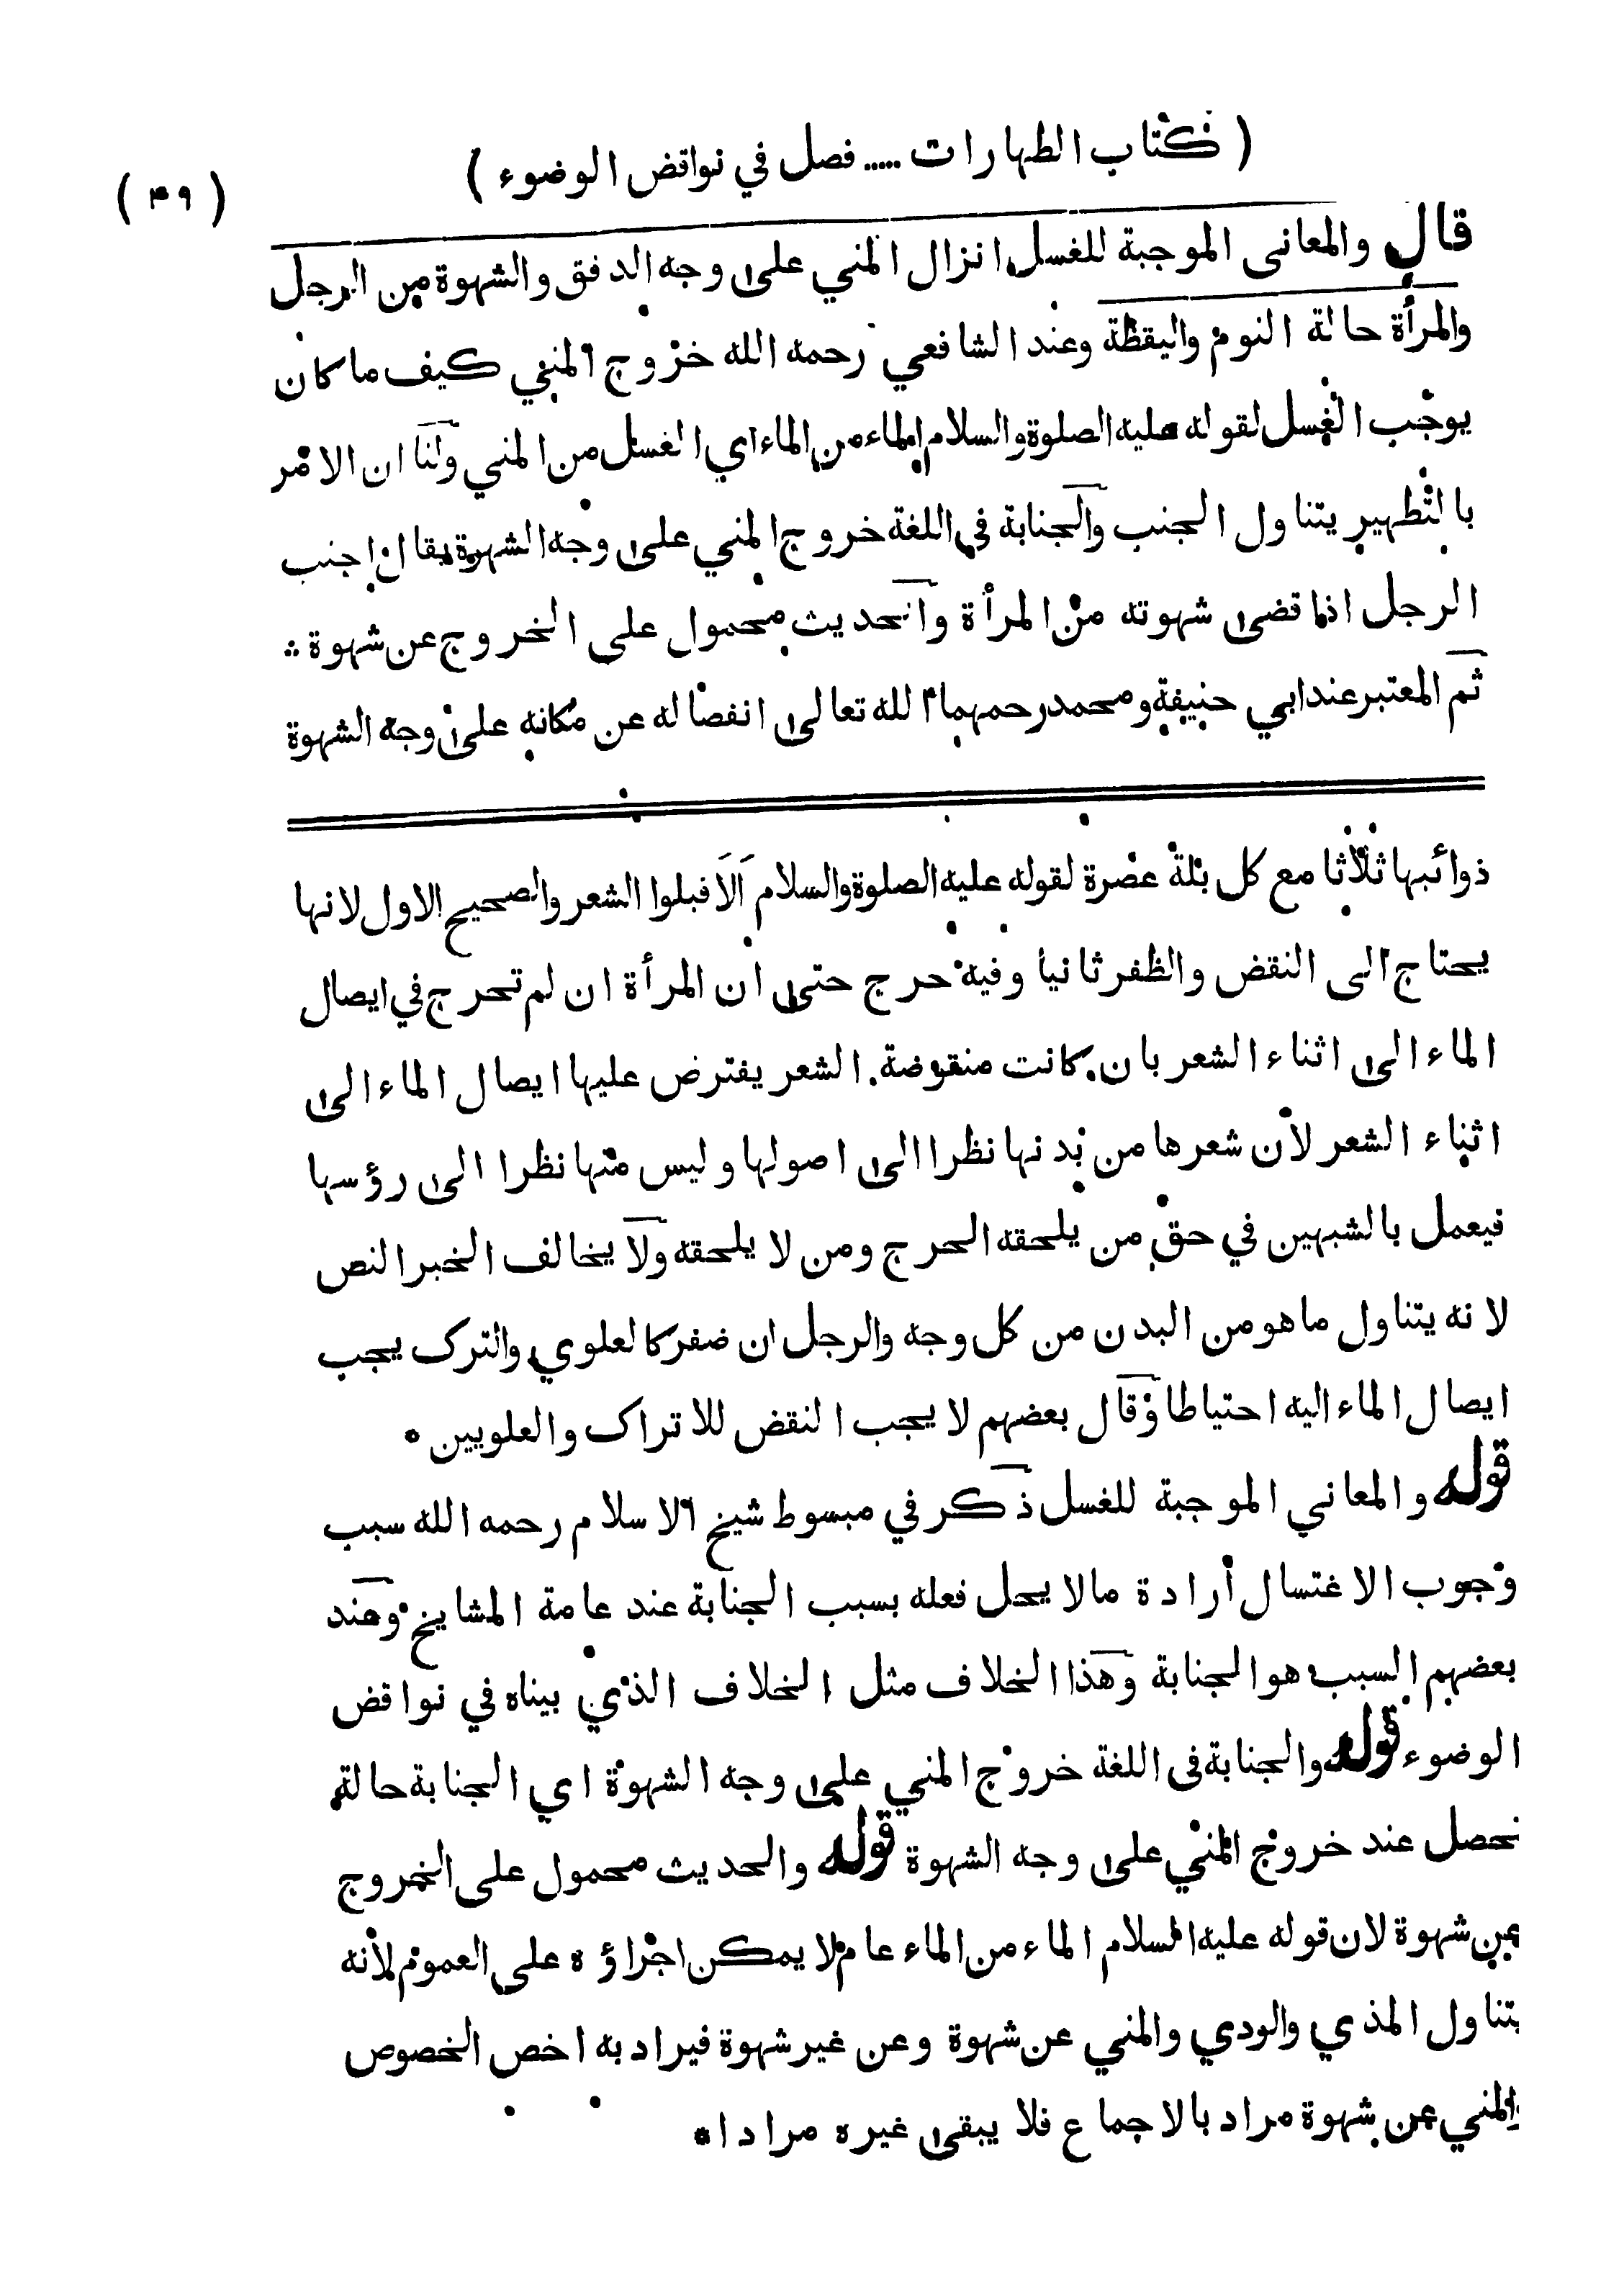 ( كتاب الطهارات ..... فصل في نواقض الوضوء )
( ۴۹ )
قال والمعاني الموجبة للغسل انزال المني على وجه الدفق والشهوة من الرجل
والمرأة حالة النوم واليقظة وعند الشافعي رحمه الله خروج المني كيف ما كان
يوجب الغسل لقوله عليه الصلوة والسلام الماء من الماء اي الغسل من المني ولنا ان الامر
بالتطهير يتناول الجنب والجنابة في اللغة خروج المني على وجه الشهوة يقال اجنب
الرجل اذا قضى شهوته من المرأة والحديث محمول على الخروج عن شهوة ؞
ثم المعتبر عند ابي حنيفة ومحمد رحمهما الله تعالى انفصاله عن مكانه على وجه الشهوة
ذوائبها ثلاثا مع كل بلة عصرة لقوله عليه الصلوة والسلام اَلَا فبلوا الشعر والصحيح الاول لانها
يحتاج الى النقض والظفر ثانيا وفيه حرج حتى ان المرأة ان لم تحرج في ايصال
الماء الى اثناء الشعر بان كانت منقوضة الشعر يفترض عليها ايصال الماء الى
اثناء الشعر لان شعرها من بدنها نظرا الى اصولها وليس منها نظرا الى رؤسها
فيعمل بالشبهين في حق من يلحقه الحرج ومن لا يلحقه ولا يخالف الخبر النص
لانه يتناول ما هو من البدن من كل وجه والرجل ان ضفر كالعلوي والترك يجب
ايصال الماء اليه احتياطا وقال بعضهم لا يجب النقض للاتراك والعلويين ۰
قوله والمعاني الموجبة للغسل ذكر في مبسوط شيخ الاسلام رحمه الله سبب
وجوب الاغتسال أرادة مالا يحل فعله بسبب الجنابة عند عامة المشايخ وعند
بعضهم السبب هو الجنابة وهذا الخلاف مثل الخلاف الذي بيناه في نواقض
الوضوء قوله والجنابة فى اللغة خروج المني على وجه الشهوة اي الجنابة حالة
تحصل عند خروج المني على وجه الشهوة قوله والحديث محمول على الخروج
عن شهوة لان قوله عليه السلام الماء من الماء عام لا يمكن اجراؤه على العموم لأنه
يتناول المذي والودي والمني عن شهوة وعن غير شهوة فيراد به اخص الخصوص
والمني عن شهوة مراد بالاجماع فلا يبقى غيره مرادا *